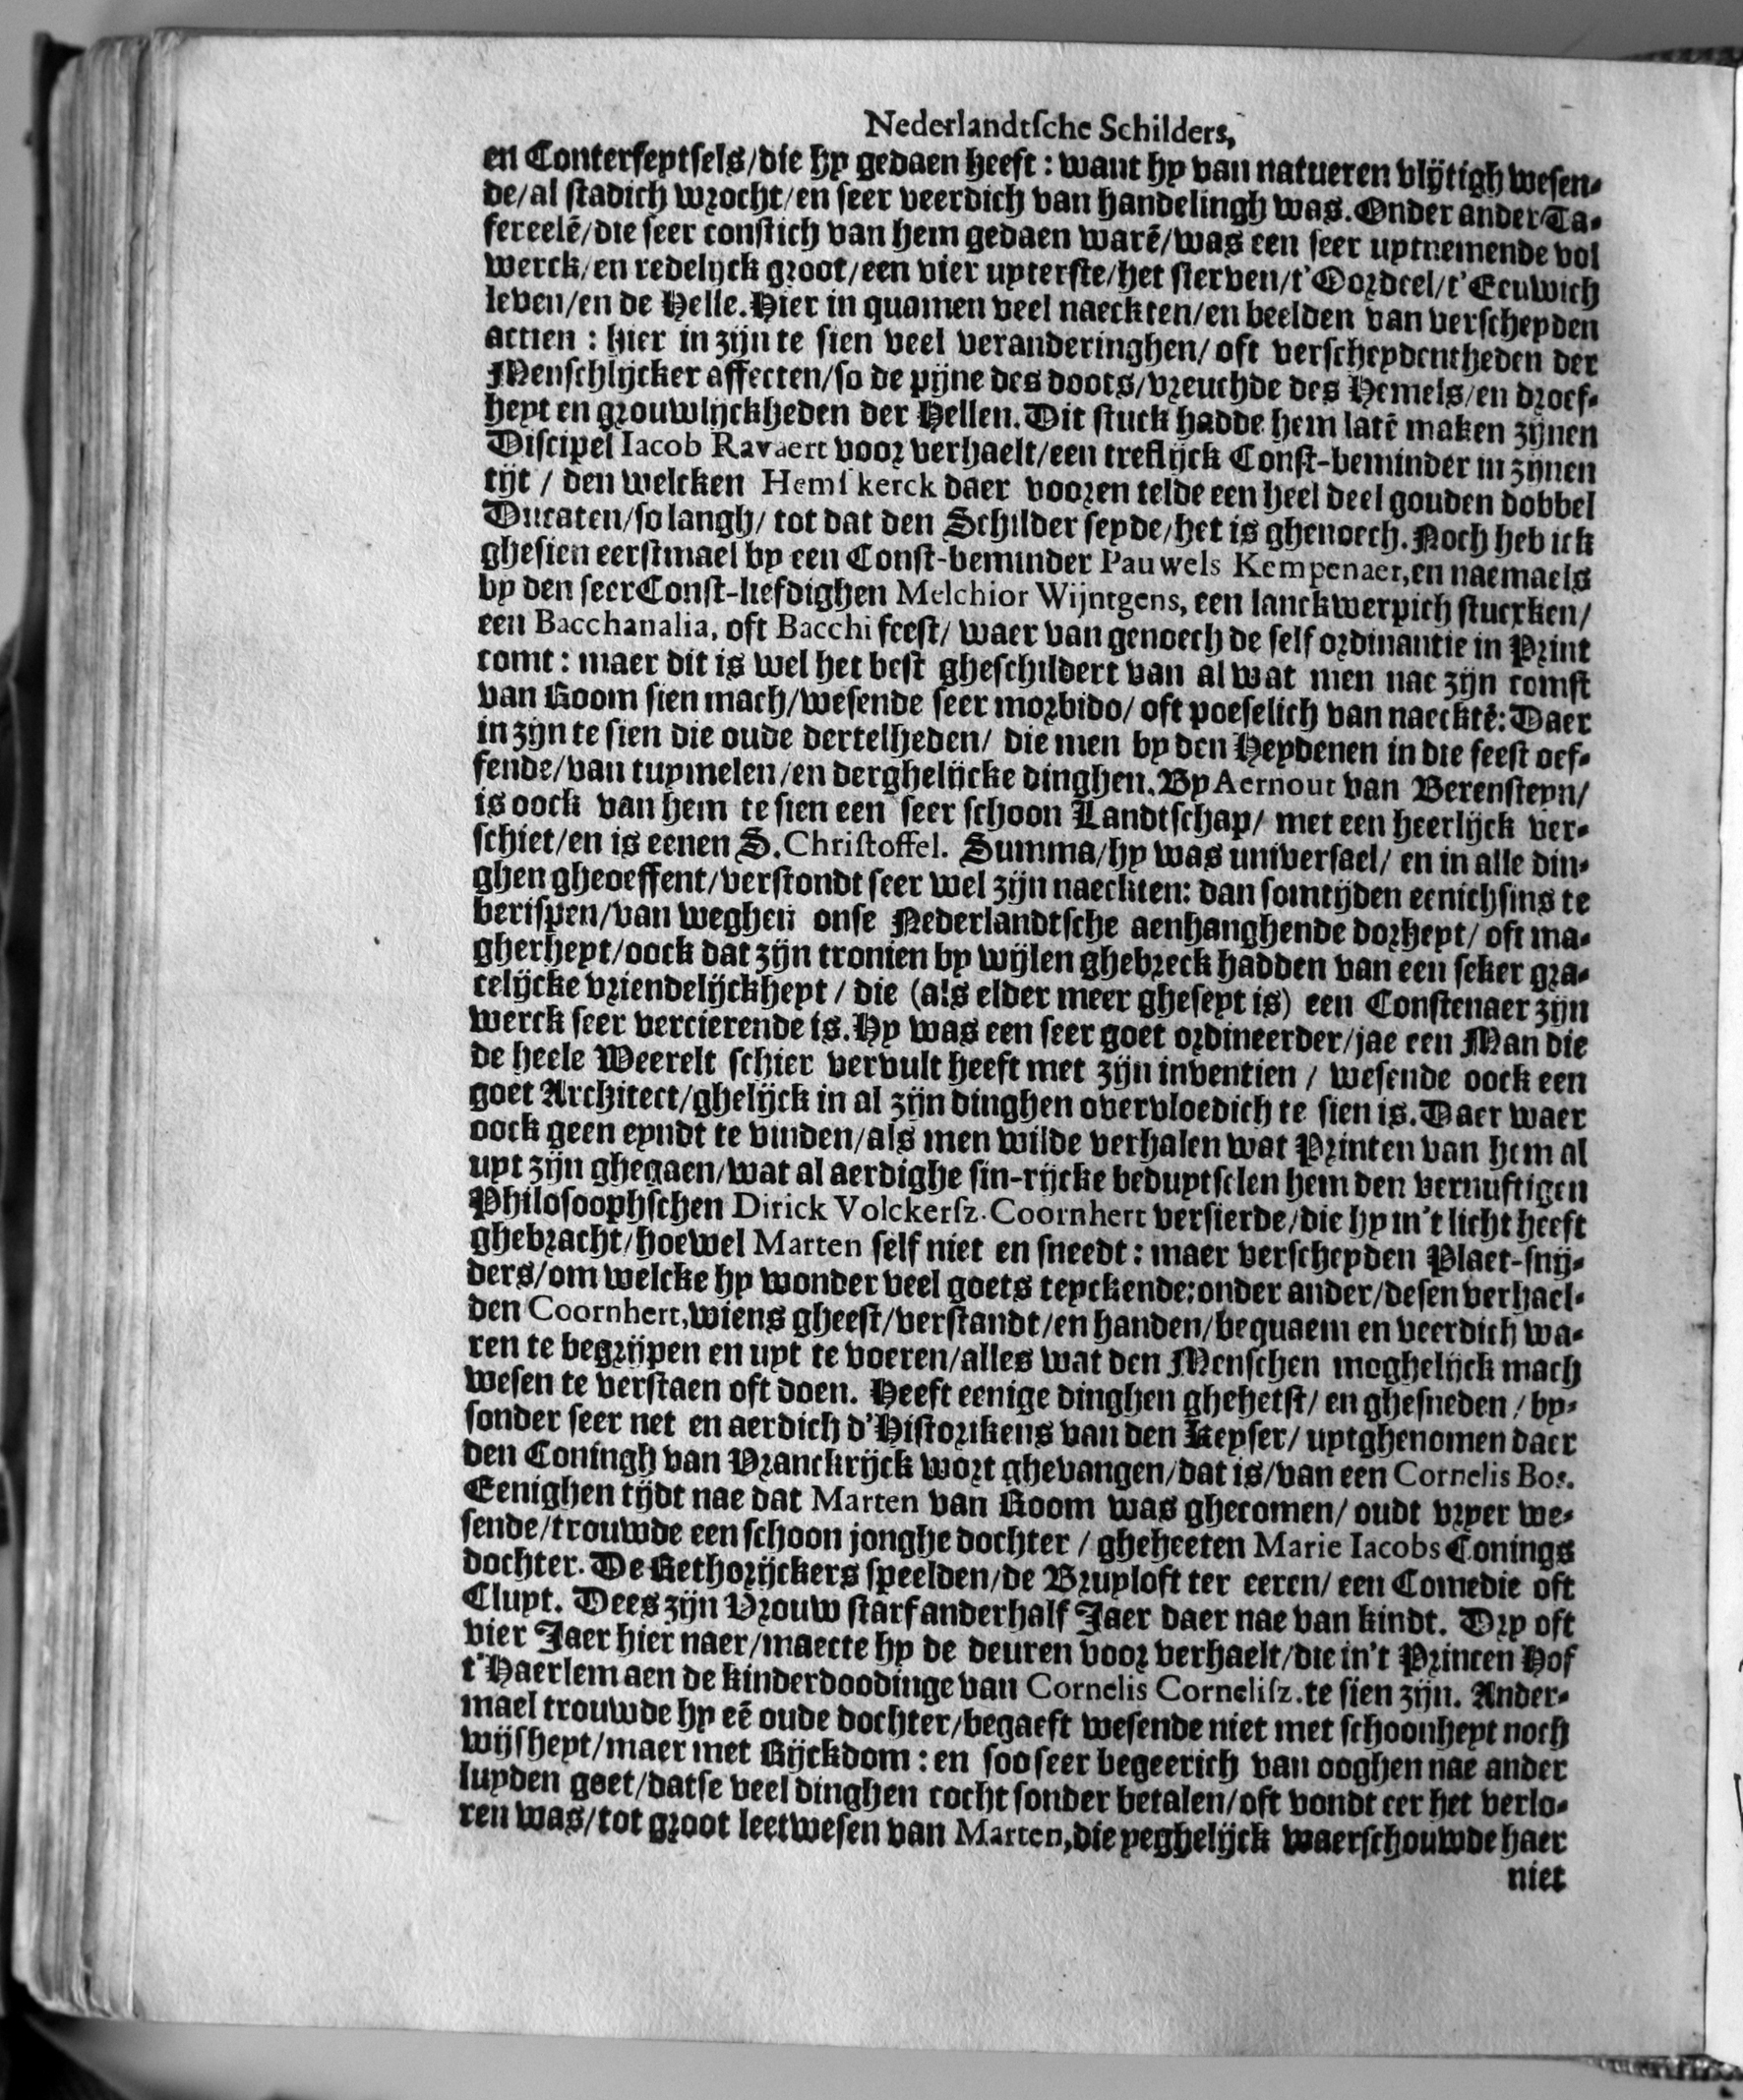 Nederlandtſche Schilders,
en Conterfeytſels/die hy gedaen heeft: want hy van natueren vlijtigh weſen-
de/al ſtadich wrocht/en ſeer veerdich van handelingh was. Onder ander Ta-
fereelē/die ſeer conſtich van hem gedaen warē/was een ſeer uytnemende vol
werck/en redelijck groot/een vier uyterſte/het ſterven/t'Oordeel/t'Eeuwich
leven/en de Helle. Hier in quamen veel naeckten/en beelden van verſcheyden
actien: hier in zijn te ſien veel veranderinghen/ oft verſcheydentheden der
Menſchlijcker affecten/ſo de pijne des doots/vreuchde des Hemels/en droef-
heyt en grouwlijckheden der Hellen. Dit ſtuck hadde hem latē maken zijnen
Diſcipel Iacob Ravaert voor verhaelt/een treflijck Conſt-beminder in zijnen
tijt / den welcken Hemſkerck daer vooren telde een heel deel gouden dobbel
Ducaten/ſo langh/ tot dat den Schilder ſeyde/het is ghenoech. Noch heb ick
gheſien eerſtmael by een Conſt-beminder Pauwels Kempenaer,en naemaels
by den ſeer Conſt-liefdighen Melchior Wijntgens, een lanckwerpich ſtucxken/
een Bacchanalia, oft Bacchi feeſt/ waer van genoech de ſelf ordinantie in Print
comt: maer dit is wel het beſt gheſchildert van al wat men nae zijn comſt
van Room ſien mach/weſende ſeer morbido/ oft poeſelich van naecktē: Daer
in zijn te ſien die oude dertelheden/ die men by den Heydenen in die feeſt oef-
fende/van tuymelen/en derghelijcke dinghen. By Aernout van Berenſteyn/
is oock van hem te ſien een ſeer ſchoon Landtſchap/ met een heerlijck ver-
ſchiet/en is eenen S. Chriſtoffel. Summa/hy was univerſael/ en in alle din-
ghen gheoeffent/verſtondt ſeer wel zijn naeckten: dan ſomtijden eenichſins te
beriſpen/van weghen onſe Nederlandtſche aenhanghende dorheyt/ oft ma-
gherheyt/oock dat zijn tronien by wijlen ghebreck hadden van een ſeker gra-
celijcke vriendelijckheyt / die (als elder meer gheſeyt is) een Conſtenaer zijn
werck ſeer vercierende is. Hy was een ſeer goet ordineerder/jae een Man die
de heele Weerelt ſchier vervult heeft met zijn inventien / weſende oock een
goet Architect/ghelijck in al zijn dinghen overvloedich te ſien is. Daer waer
oock geen eyndt te vinden/als men wilde verhalen wat Printen van hem al
uyt zijn ghegaen/wat al aerdighe ſin-rijcke beduytſelen hem den vernuftigen
Philoſoophſchen Dirick Volckerſz. Coornhert verſierde/die hy in't licht heeft
ghebracht/hoewel Marten ſelf niet en ſneedt: maer verſcheyden Plaet-ſnij-
ders/om welcke hy wonder veel goets teyckende: onder ander/deſen verhael-
den Coornhert,wiens gheeſt/verſtandt/en handen/bequaem en veerdich wa-
ren te begrijpen en uyt te voeren/alles wat den Menſchen moghelijck mach
weſen te verſtaen oft doen. Heeft eenige dinghen ghehetſt/ en gheſneden / by-
ſonder ſeer net en aerdich d'Hiſtorikens van den Keyſer/ uytghenomen daer
den Coningh van Vranckrijck wort ghevangen/dat is/van een Cornelis Bos.
Eenighen tijdt nae dat Marten van Room was ghecomen/ oudt vryer we-
ſende/trouwde een ſchoon jonghe dochter / gheheeten Marie Iacobs Conings
dochter. De Rethorijckers ſpeelden/de Bruyloft ter eeren/ een Comedie oft
Cluyt. Dees zijn Vrouw ſtarf anderhalf Jaer daer nae van kindt. Dry oft
vier Jaer hier naer/maecte hy de deuren voor verhaelt/die in't Princen Hof
t'Haerlem aen de kinderdoodinge van Cornelis Corneliſz. te ſien zijn. Ander-
mael trouwde hy eē oude dochter/begaeft weſende niet met ſchoonheyt noch
wijſheyt/maer met Rijckdom: en ſoo ſeer begeerich van ooghen nae ander
luyden goet/datſe veel dinghen cocht ſonder betalen/oft vondt eer het verlo-
ren was/tot groot leetweſen van Marten,die yeghelijck waerſchouwde haer
niet